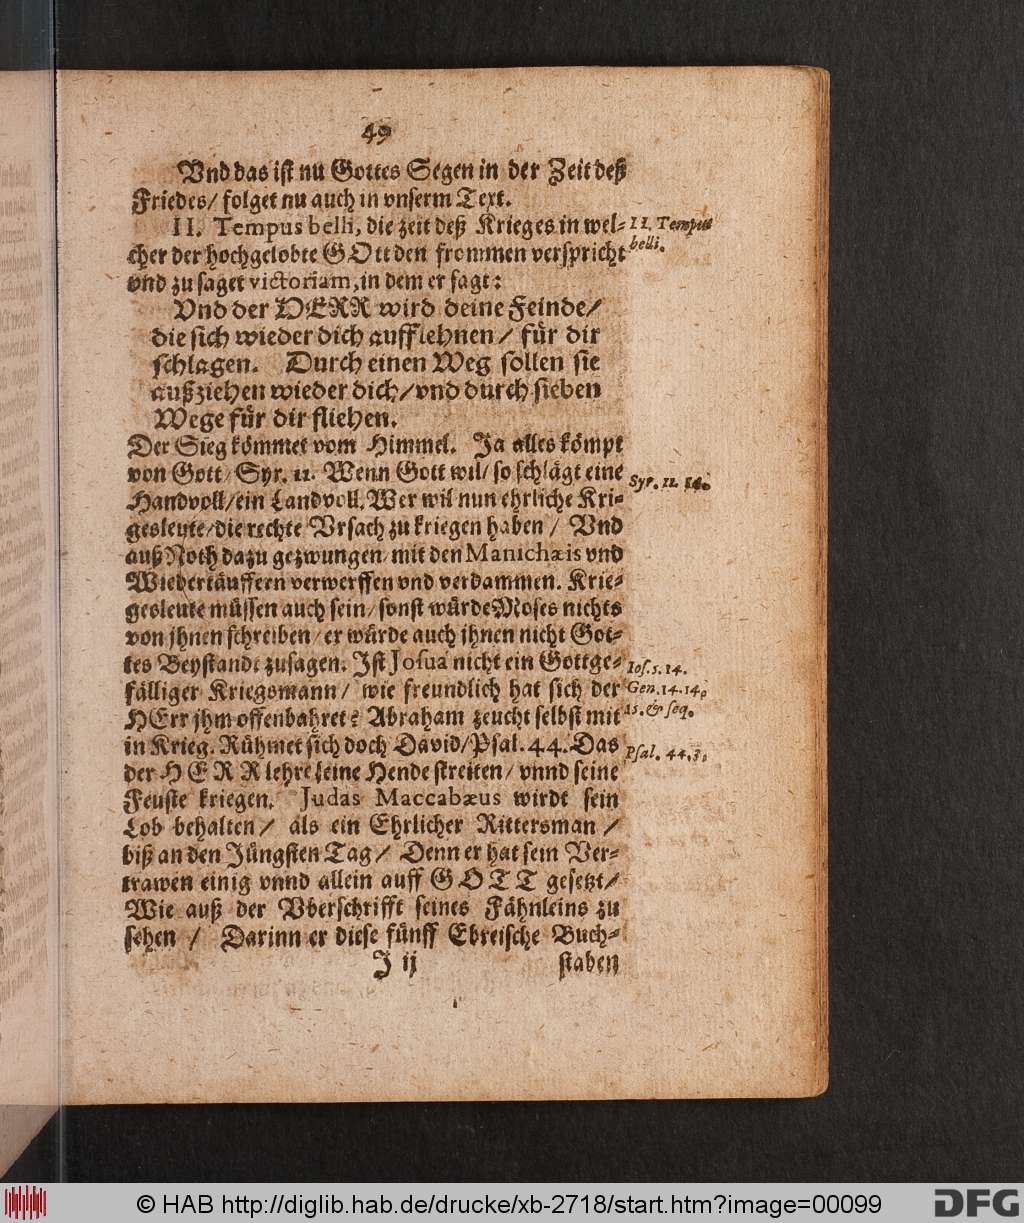 49
Vnd das ist nu Gottes Segen in der Zeit deß
Friedes/ folget nu auch in vnserm Text.
II. Tempus belli, die zeit deß Krieges in wel-
II. Tempus
cher der hochgelobte GOtt den frommen verspricht
belli.
vnd zu saget victoriam, in dem er sagt:
Vnd der HERR wird deine Feinde/
die sich wieder dich aufflehnen/ für dir
schlagen. Durch einen Weg sollen sie
außziehen wieder dich/ vnd durch sieben
Wege für dir fliehen.
Der Sieg kömmet vom Himmel. Ja alles kömpt
von Gott/ Syr. 11. Wenn Gott wil/ so schlägt eine
Syr. 11. 14.
Handvoll/ ein Landvoll. Wer wil nun ehrliche Kri-
gesleute/ die rechte Vrsach zu kriegen haben/ Vnd
auß Noth dazu gezwungen/ mit den Manichæis vnd
Wiedertäuffern verwerffen vnd verdammen. Krie-
gesleute müssen auch sein/ sonst würde Moses nichts
von jhnen schreiben/ er würde auch jhnen nicht Got-
tes Beystandt zusagen. Ist Josua nicht ein Gottge-
Ios. 5. 14.
fälliger Kriegsmann/ wie freundlich hat sich der
Gen. 14. 14.
HErr jhm offenbahret? Abraham zeucht selbst mit
15. & seq.
in Krieg. Rühmet sich doch David/ Psal. 44. Das
Psal. 44. 3.
der HERR lehre seine Hende streiten/ vnnd seine
Feuste kriegen. Judas Maccabæus wirdt sein
Lob behalten/ als ein Ehrlicher Rittersman/
biß an den Jüngsten Tag/ Denn er hat sein Ver-
trawen einig vnnd allein auff GOTT gesetzt/
Wie auß der Vberschrifft seines Fähnleins zu
sehen/ Darinn er diese fünff Ebreische Buch-
J ij
staben
© HAB http://diglib.hab.de/drucke/xb-2718/start.htm?image=00099
DFG